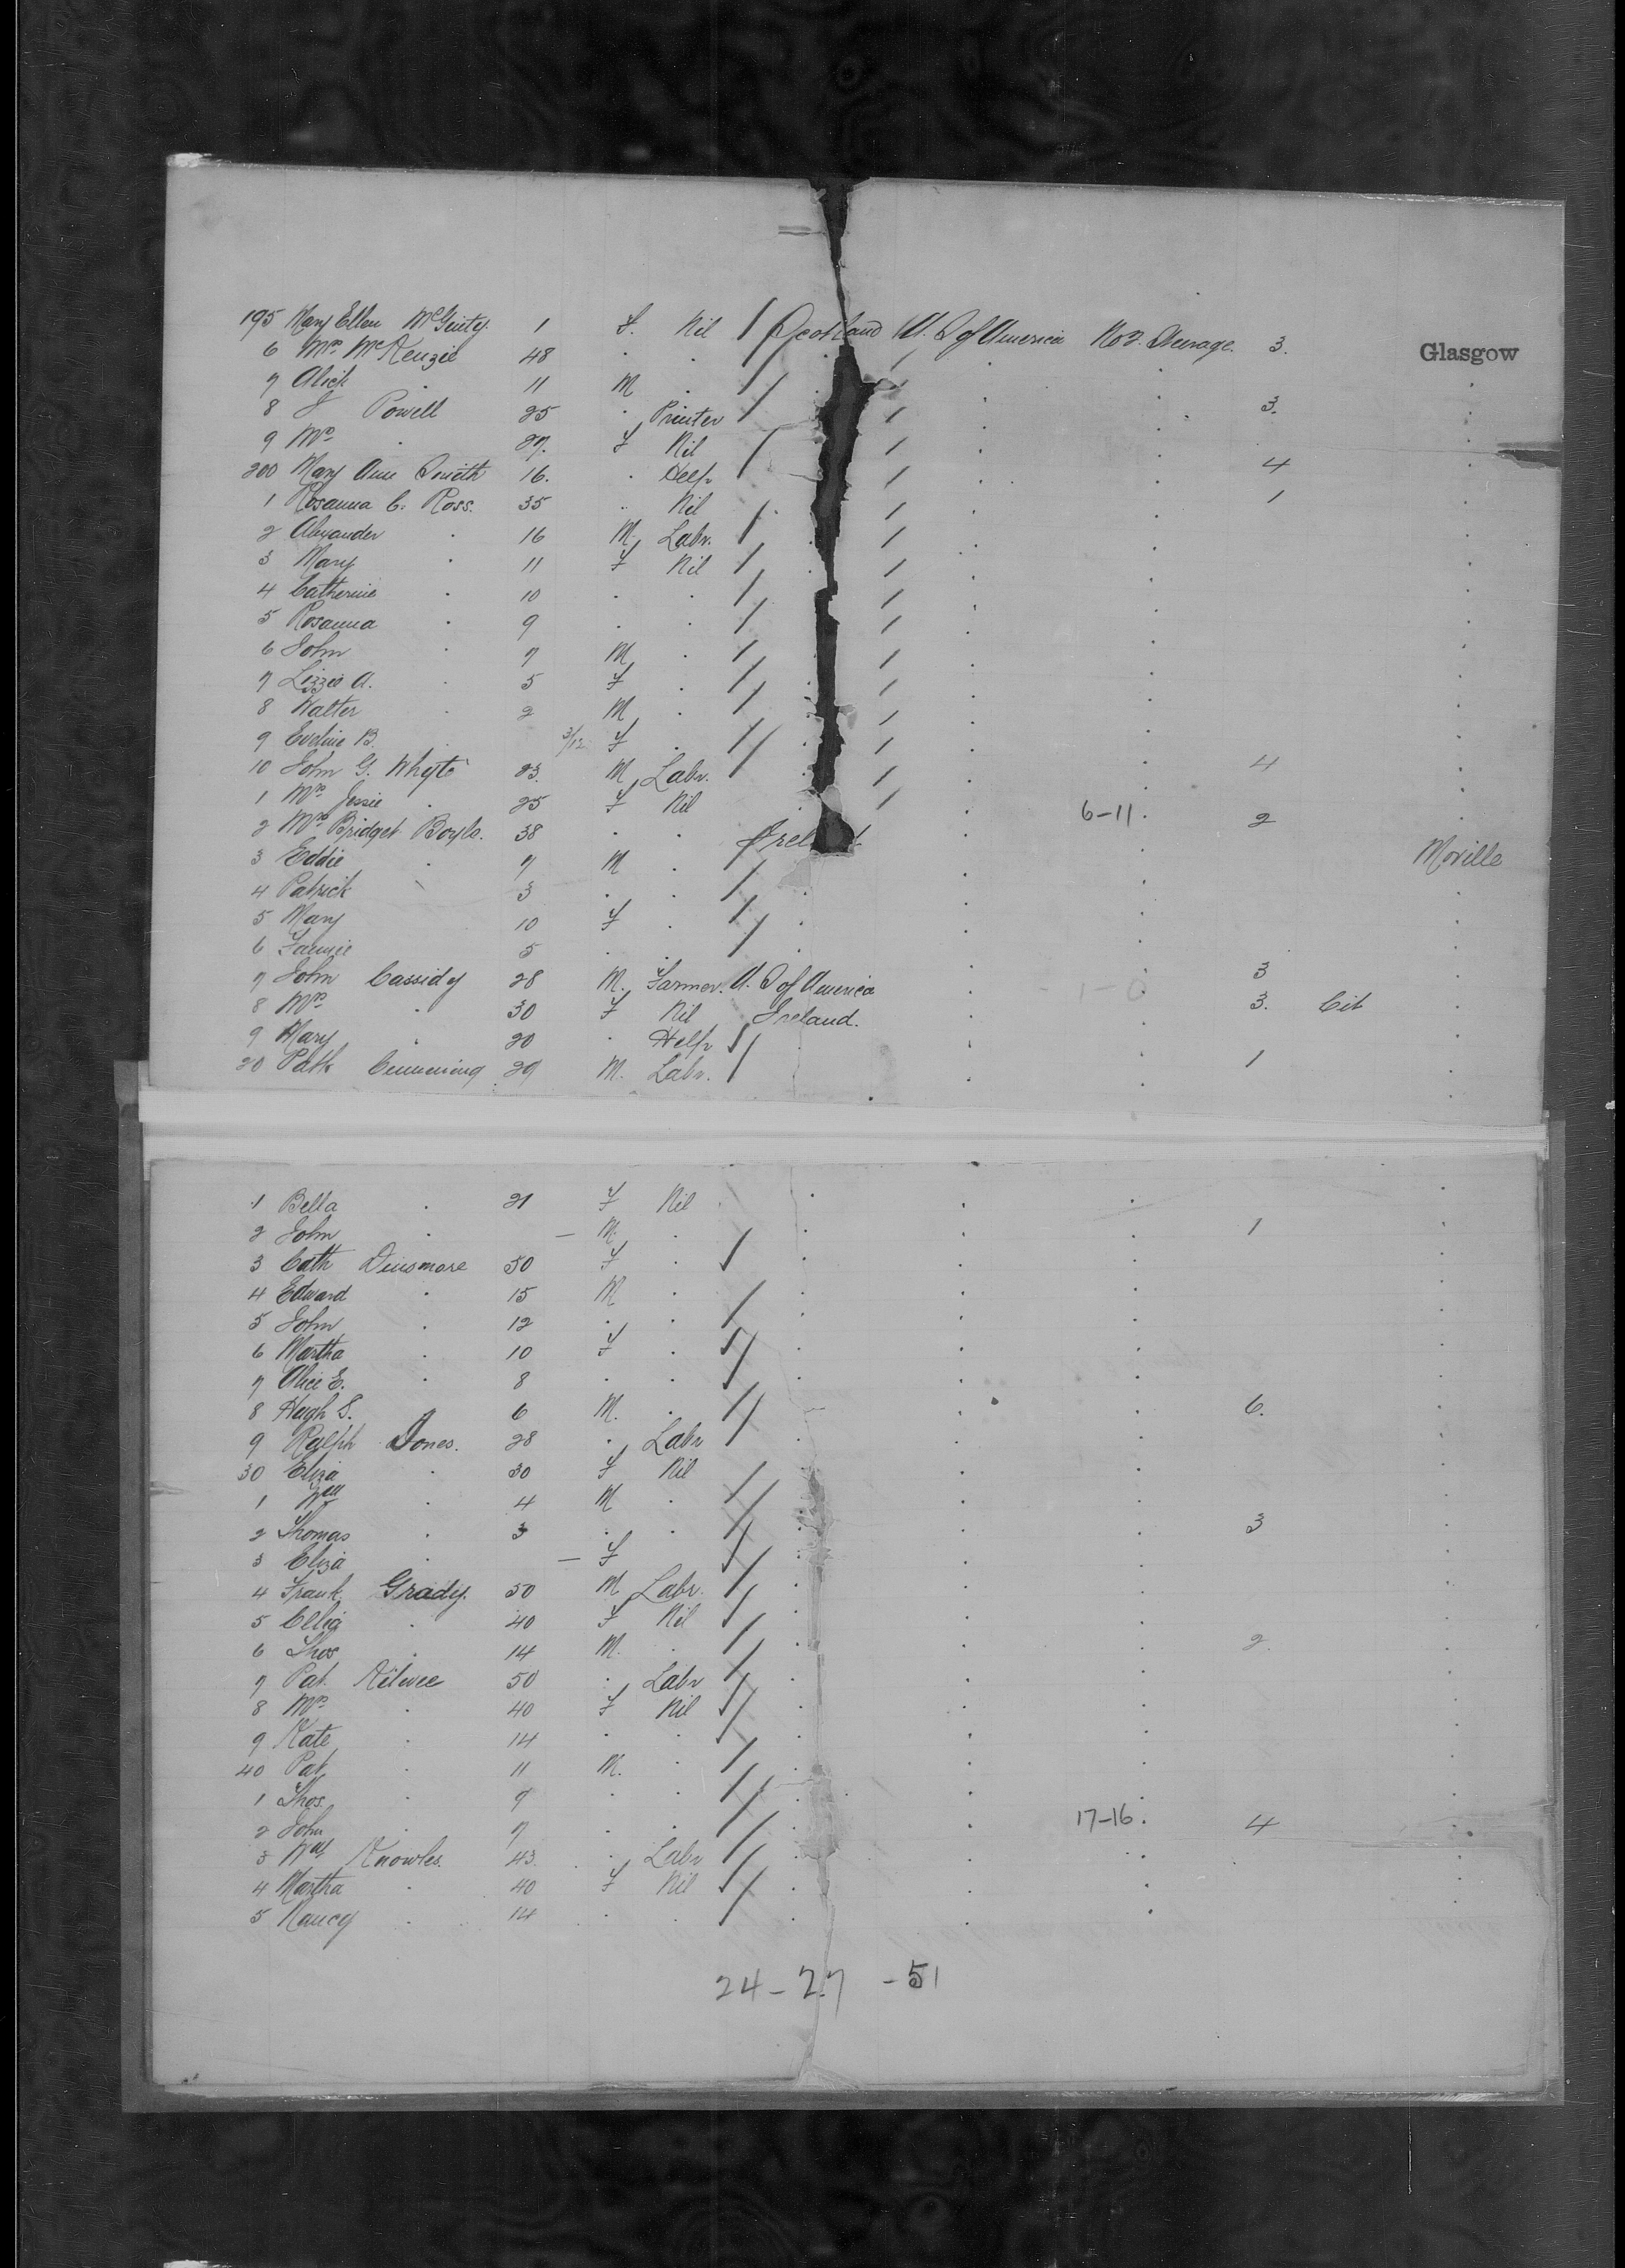 195 Mary Ellen McGinty. 1 F. Nil Scotland U. S of America No 2. Steerage. 3. Glasgow
6 Mrs McKenzie 48 . .
7 Alick . 11 M .
8 J Powell 25 . Printer 3.
9 Mrs . 27. F Nil
200 Mary Ann Smith 16. . Help 4
1 Rosanna C. Ross. 35 . Nil 1
2 Alexander . 16 M. Labr.
3 Mary . 11 F Nil
4 Catherine . 10 . .
5 Rosanna . 9 . .
6 John . 7 M .
7 Lizzie A. . 5 F .
8 Walter . 2 M .
9 Eveline B. . 3/12. F .
10 John G. Whyte 23. M Labr. 4
1 Mrs Jessie . 25 F Nil
2 Mrs Bridget Boyle. 38 . . Irel 6-11. 2
3 Eddie . 7 M . Moville
4 Patrick 3 . .
5 Mary 10 F .
6 Fannie 5 . .
7 John Cassidy 28 M. Farmer. U. S of America 3
8 Mrs . 30 F Nil Ireland. 1-0 3. Cit
9 Mary . 20 . Help
20 Patk Cumming 29 M. Labr. 1
1 Bella . 21 F Nil
2 John . — M. . 1
3 Cath Dinsmore 50 F .
4 Edward . 15 M .
5 John . 12 . .
6 Martha . 10 F .
7 Alice E. . 8 . .
8 Hugh S. 6 M. . 6.
9 Ralph Jones. 28 . Labr
30 Eliza . 30 F Nil
1 Wm . 4 M .
2 Thomas . 3 . . 3
3 Eliza . — F
4 Frank Grady. 50 M Labr.
5 Celia . 40 F Nil
6 Thos . 14 M. . 2.
7 Pat. 50 . Labr
8 Mrs . 40 F Nil
9 Kate . 14 . .
40 Pat . 11 M. .
1 Thos. . 9 . .
2 John . 7 . . 17-16. 4
3 Wm Knowles. 43. . Labr
4 Martha . 40 F Nil
5 Nancy . 14 . .
24-27-51